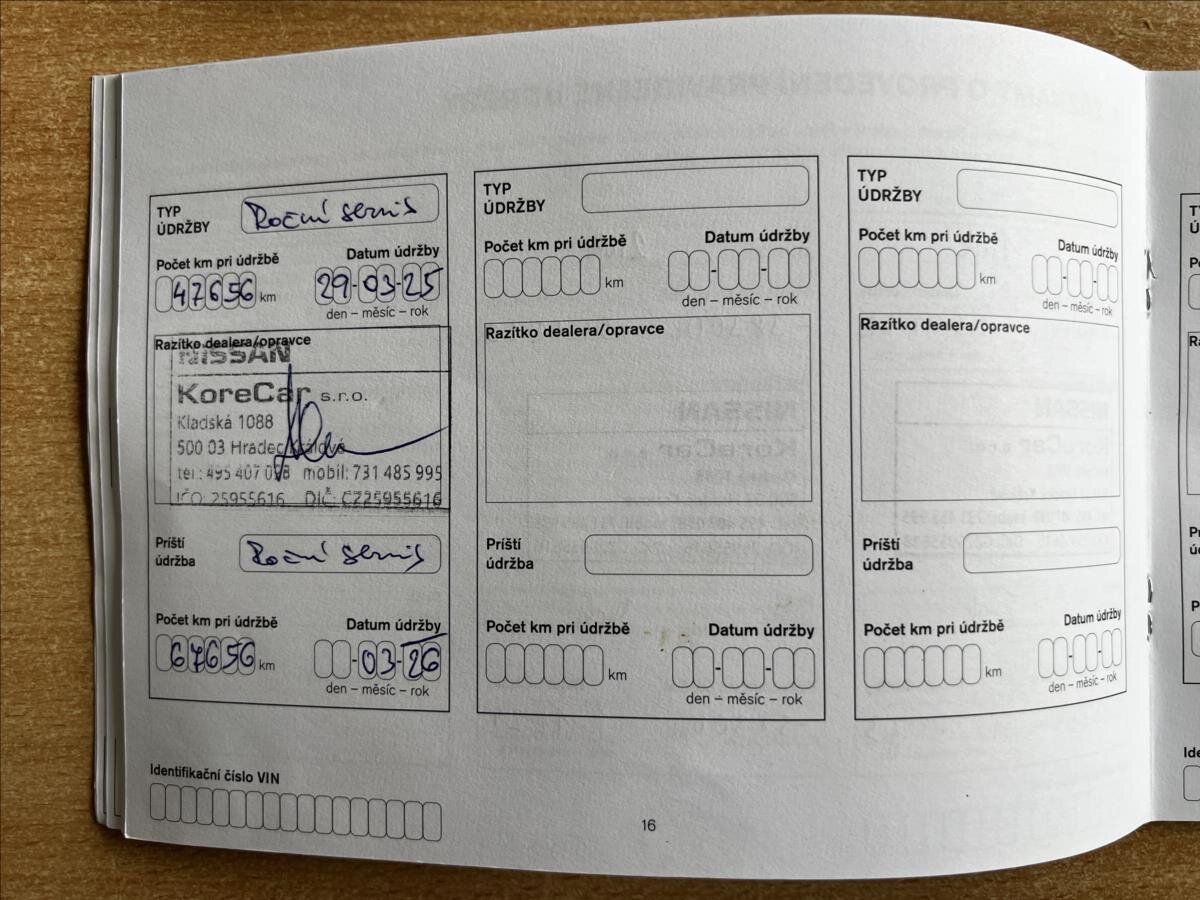 TYP
ÚDRŽBY
Roční servis
Počet km pri údržbě
Datum údržby
47656 km
29-03-25
den – měsíc – rok
Razítko dealera/opravce
NISSAN
KoreCar s.r.o.
Kladská 1088
500 03 Hradec Králové
tel.: 495 407 098 mobil: 731 485 995
IČO: 25955616 DIČ: CZ25955616
Príští
údržba
Roční servis
Počet km pri údržbě
Datum údržby
67656 km
-03-26
den – měsíc – rok
TYP
ÚDRŽBY
Počet km pri údržbě
Datum údržby
km
den – měsíc – rok
Razítko dealera/opravce
Príští
údržba
Počet km pri údržbě
Datum údržby
km
den – měsíc – rok
TYP
ÚDRŽBY
Počet km pri údržbě
Datum údržby
km
den – měsíc – rok
Razítko dealera/opravce
Príští
údržba
Počet km pri údržbě
Datum údržby
km
den – měsíc – rok
Identifikační číslo VIN
16